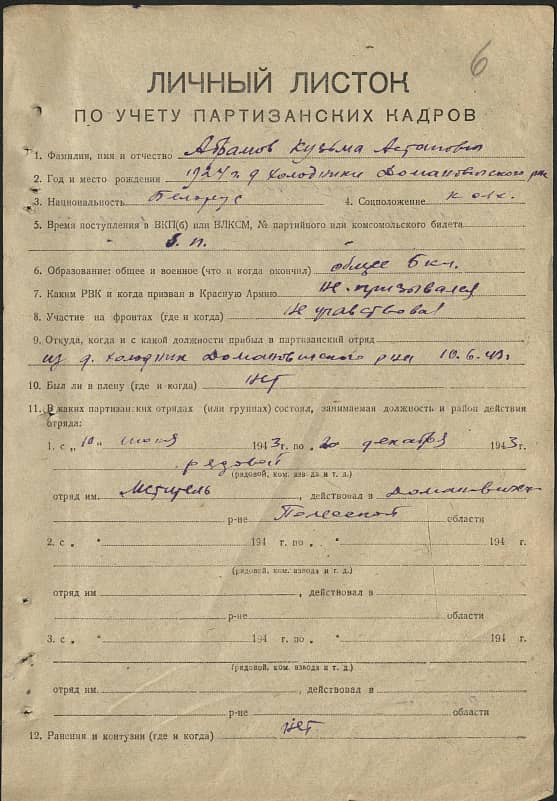 6
ЛИЧНЫЙ ЛИСТОК
ПО УЧЕТУ ПАРТИЗАНСКИХ КАДРОВ
1. Фамилия, имя и отчество Абрамов Кузьма Астапович
2. Год и место рождения 1924 г. д Холодники Домановичского р-на
3. Национальность Белорус 4. Соцположение колх.
5. Время поступления в ВКП(б) или ВЛКСМ, № партийного или комсомольского билета
б. п.
6. Образование: общее и военное (что и когда окончил) общее 5 кл.
7. Каким РВК и когда призван в Красную Армию Не призывался
8. Участие на фронтах (где и когда) Не участвовал
9. Откуда, когда и с какой должности прибыл в партизанский отряд
из д. Холодник Домановичского р-на 10.6.43 г.
10. Был ли в плену (где и когда) нет
11. В каких партизанских отрядах (или группах) состоял, занимаемая должность и район действия
отряда:
1. с „10" июня 1943 г. по „20" декабря 1943 г.
рядовой
(рядовой, ком. взвода и т. д.)
отряд им. Мститель, действовал в Домановичск
р-не Полесской области
2. с „ " 194 г. по „ " 194 г.
(рядовой, ком. взвода и т. д.)
отряд им , действовал в
р-не области
3. с „ " 194 г. по „ " 194 г.
(рядовой, ком. взвода и т. д.)
отряд им. , действовал в
р-не области
12. Ранения и контузии (где и когда) нет